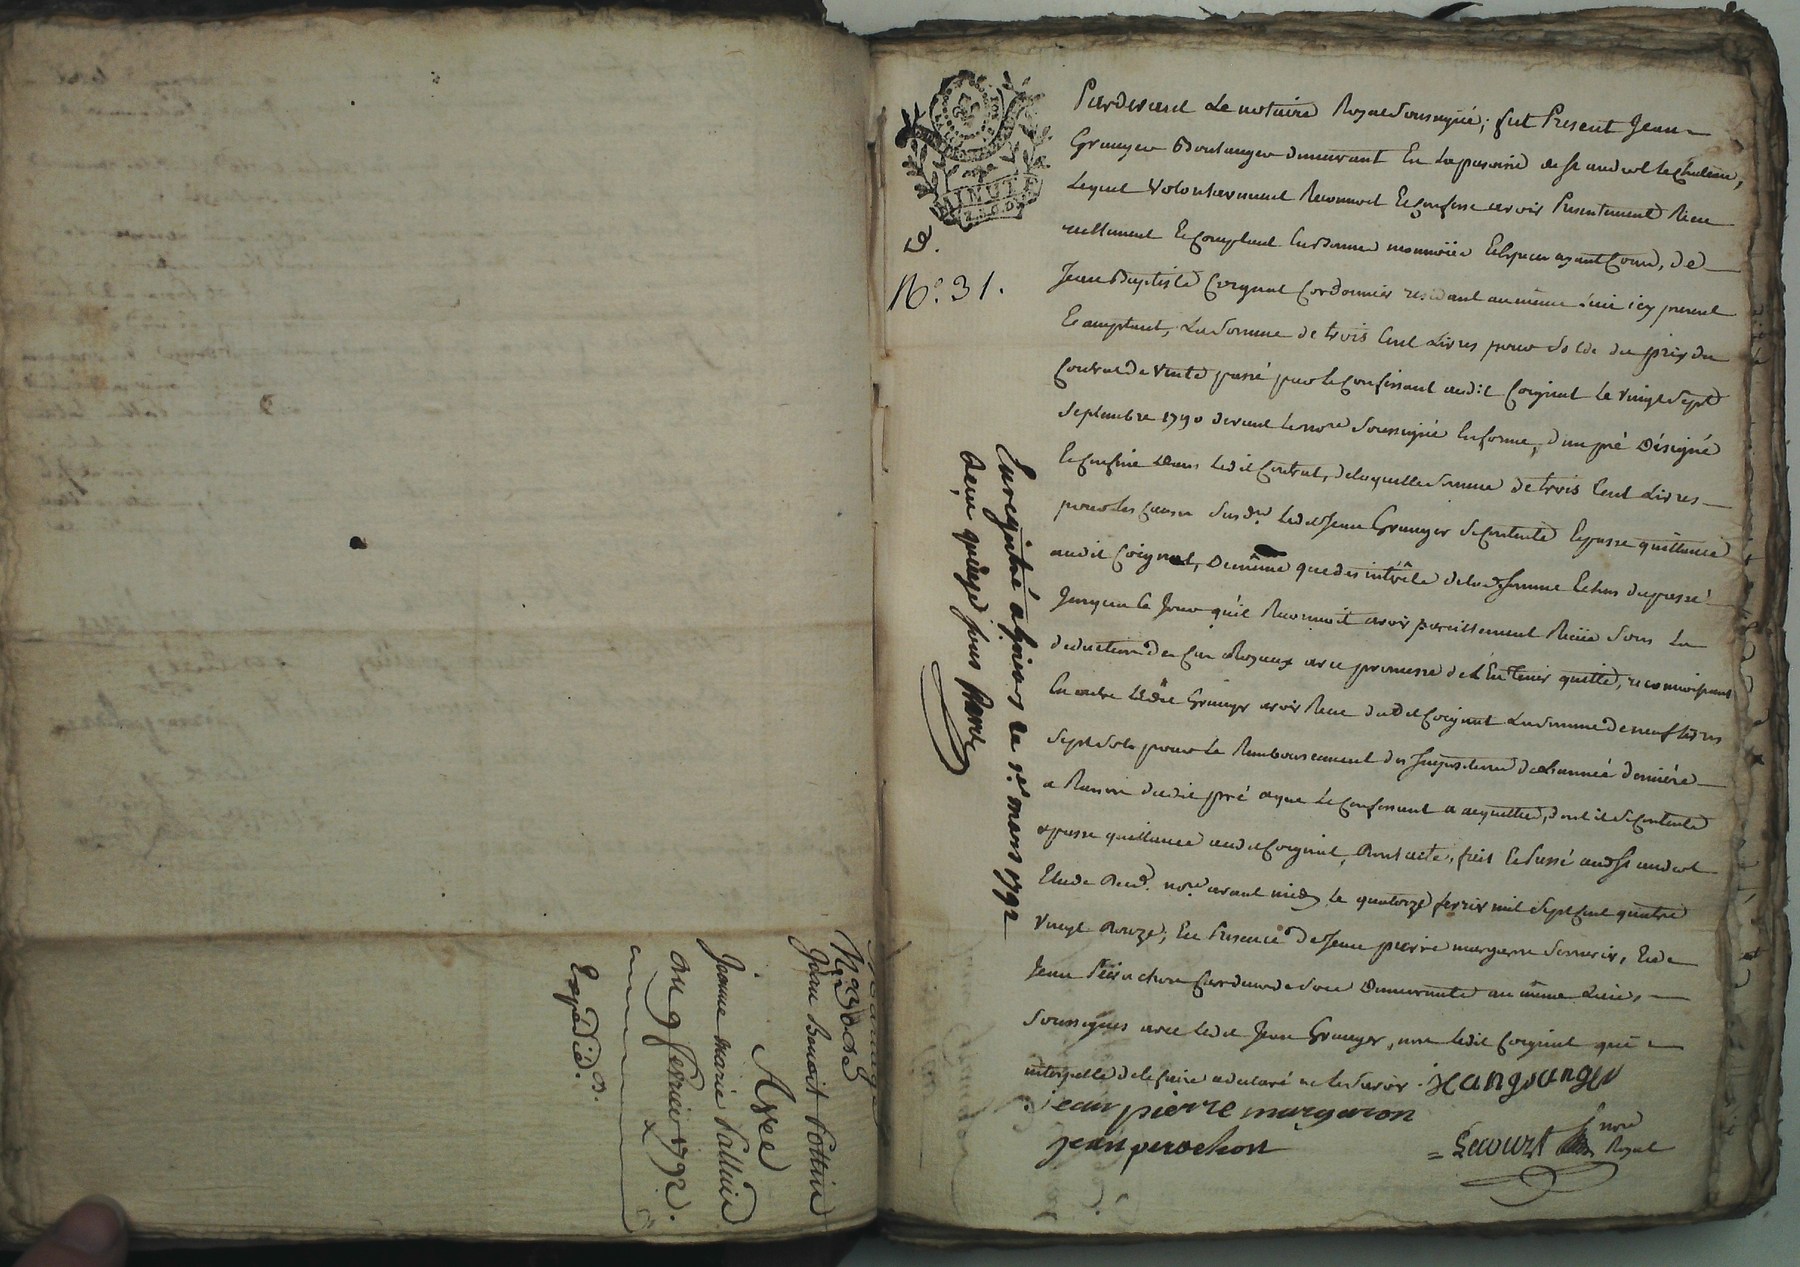 Mariage
Jean Benoit Pottin
Avec
Jeanne marie Palluis
du 9 fevrier 1792.
Expedié.
MINUTE
N.o 31.
Pardevant Le notaire Royal Soussigné; fut Present Jean
Granger Boulanger demeurant En la paroisse de St andeol le Chateau,
Lequel Volontairement Reconnoit Et Confesse avoir Presentement Reçu
reellement Et Comptant En bonne monnoïe Et Espece ayant Cour, de
Jean Baptiste Coignat Cordonnier residant au même Lieu icy present
Et acceptant, La Somme de trois Cent Livres pour Solde du prix du
Contrat de vente passé par le Confessant audit Coignat Le vingt Sept
Septembre 1790 devant Le nore Soussigné En forme, d'un pré Désigné
Et Confiné dans Ledit Contrat, de laquelle Somme de trois Cent Livres
pour les Causes Susd. Ledit Jean Granger Se Contente Et passe quittance
audit Coignat, De même que des intérêts de lad. Somme Echus du passé
Jusqu'a Ce Jour qu'il Reconnoit avoir pareillement Reçus Sous La
deduction des Royaux avec promesse de l'En Tenir quitte, reconnoissant
En outre Ledit Granger avoir Reçu dudit Coignat La Somme de neuf Livres
Sept Sols pour Le Remboursement des Impositions de L'année derniere
a Raison dudit pré que Le Confessant a acquittée, dont il Se Contente
Et passe quittance audit Coignat, Dont acte, fait Et Passé aud. St andeol
Etude dud. nore avant midy Le quatorze fevrier mil Sept Cent quatre
vingt Douze, En Presence de Jean pierre margaron Serrurier, Et de
Jean Perrachon Cardeur de Soie Demeurants au même Lieu,
Soussignés avec Ledit Jean Granger, non Ledit Coignat qui
interpellé de le faire a declaré ne le Savoir. jean granger
jean pierre margaron
jean perochon
Lecourt nore Royal
Enregistré a givors Le 1er mars 1792
Reçu quinze sous